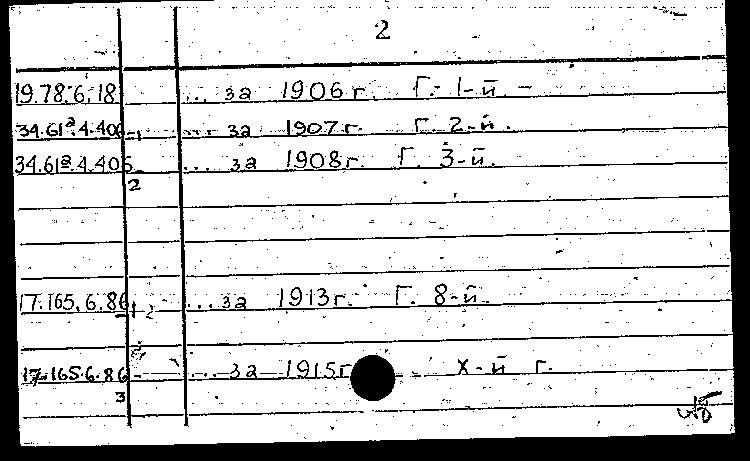 2
19.78.6.18 ... за 1906 г. Г. 1-й
34.61ª.4.406-1 ... за 1907 г. Г. 2-й.
34.61ª.4.406-2 ... за 1908 г. Г. 3-й.
17.165.6.86-1 2 ... за 1913 г. Г. 8-й.
17.165.6.86-3 ... за 1915 г X-й г.